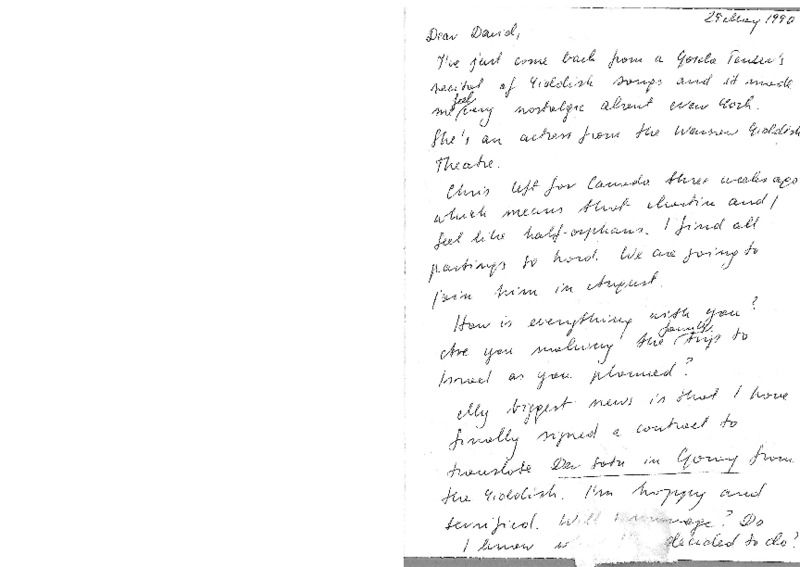 29 May 1990
Dear David,
I've just come back from a Golda Tencer's
recital of Yiddish songs and it made
me feel very nostalgic about New York.
She's an actress from the Warsaw Yiddish
Theatre.
Chris left for Canada three weeks ago
which means that Martin and I
feel like half-orphans. I find all
partings so hard. We are going to
join him in August.
How is everything with you?
Are you making the family trip to
Israel as you planned?
My biggest news is that I have
finally signed a contract to
translate Der Sotn in Goray from
the Yiddish. I'm happy and
terrified. Will I manage? Do
I know decided to do?